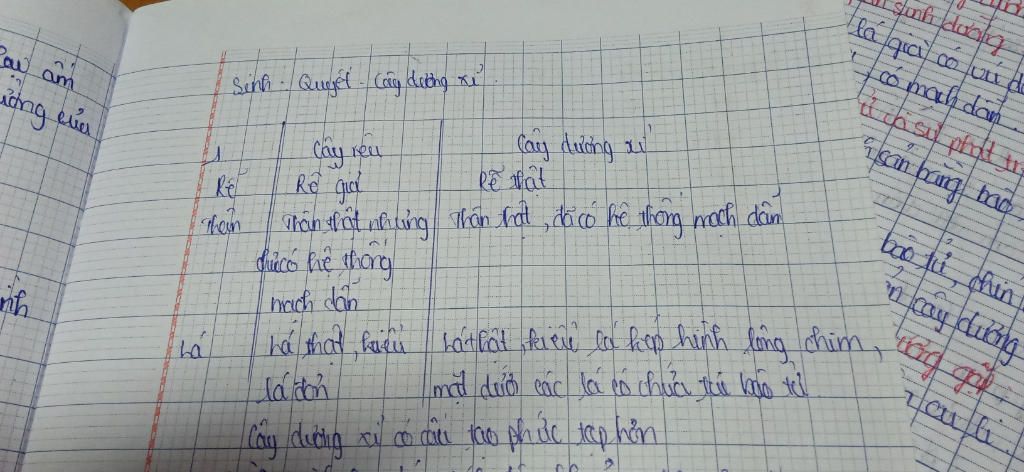 Sinh - Quyết - Cây dương xỉ
1 Cây rêu Cây dương xỉ
Rễ Rễ giả Rễ thật
Thân Thân thật nhưng Thân thật, đã có hệ thống mạch dẫn
có hệ thống
mạch dẫn
Lá Lá thật, kiểu Lá thật, kiểu lá kép hình lông chim,
lá đơn mặt dưới các lá có chứa túi bào tử
Cây dương xỉ có cấu tạo phức tạp hơn
âm
của
sinh dưỡng
lá già có
có mạch dẫn
có sự phát
cân bằng
bào tử, chín
cây dương